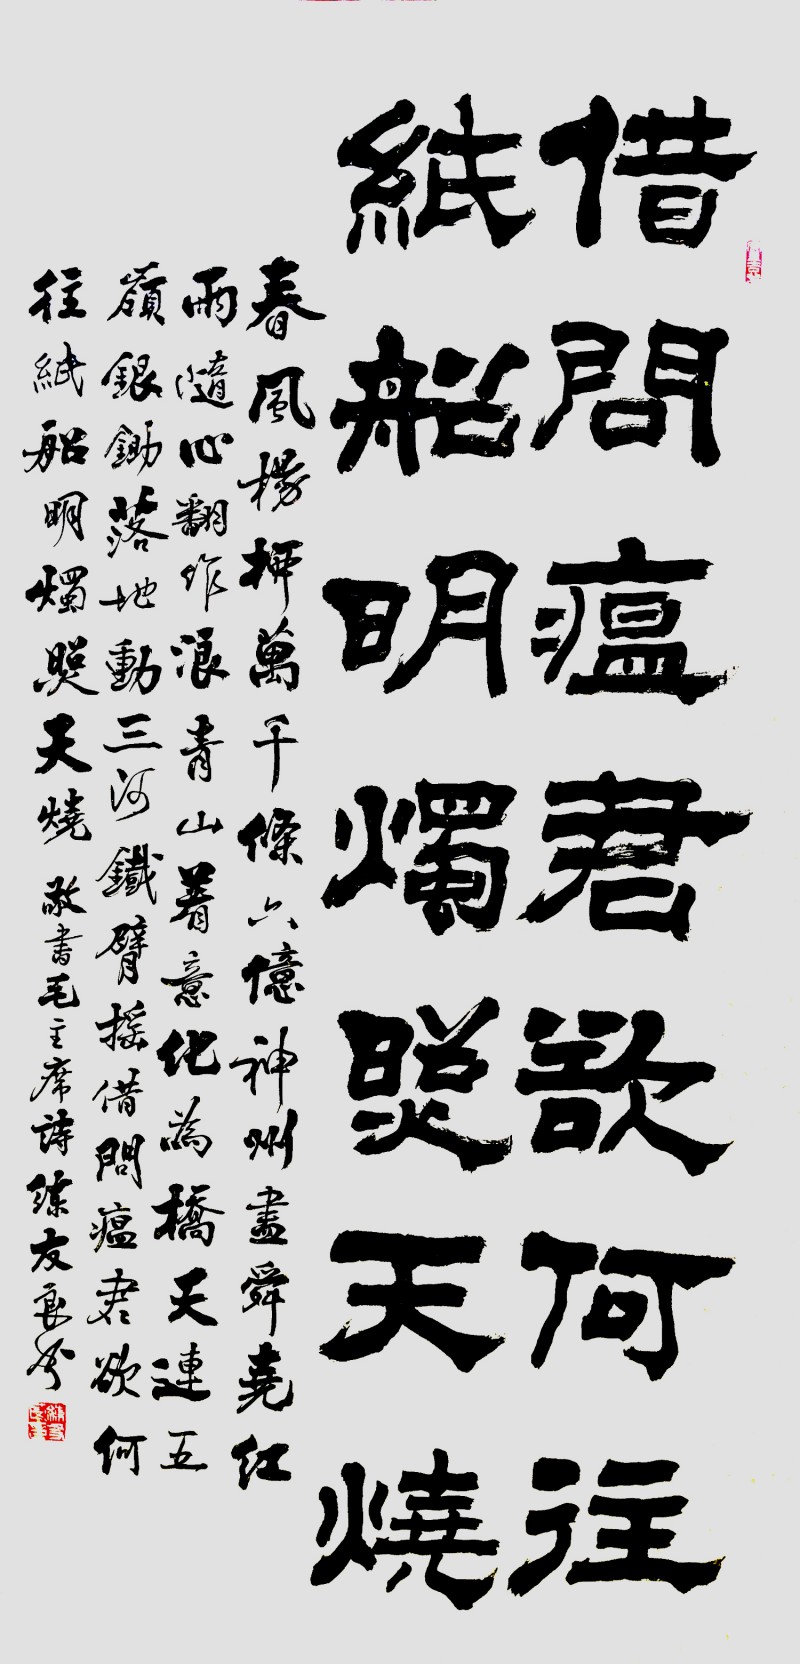 借問瘟君欲何往
紙船明燭照天燒
春風楊柳萬千條六億神州盡舜堯紅
雨隨心翻作浪青山着意化為橋天連五
嶺銀鋤落地動三河鐵臂搖借問瘟君欲何
往紙船明燭照天燒 敬書毛主席詩 練友良書